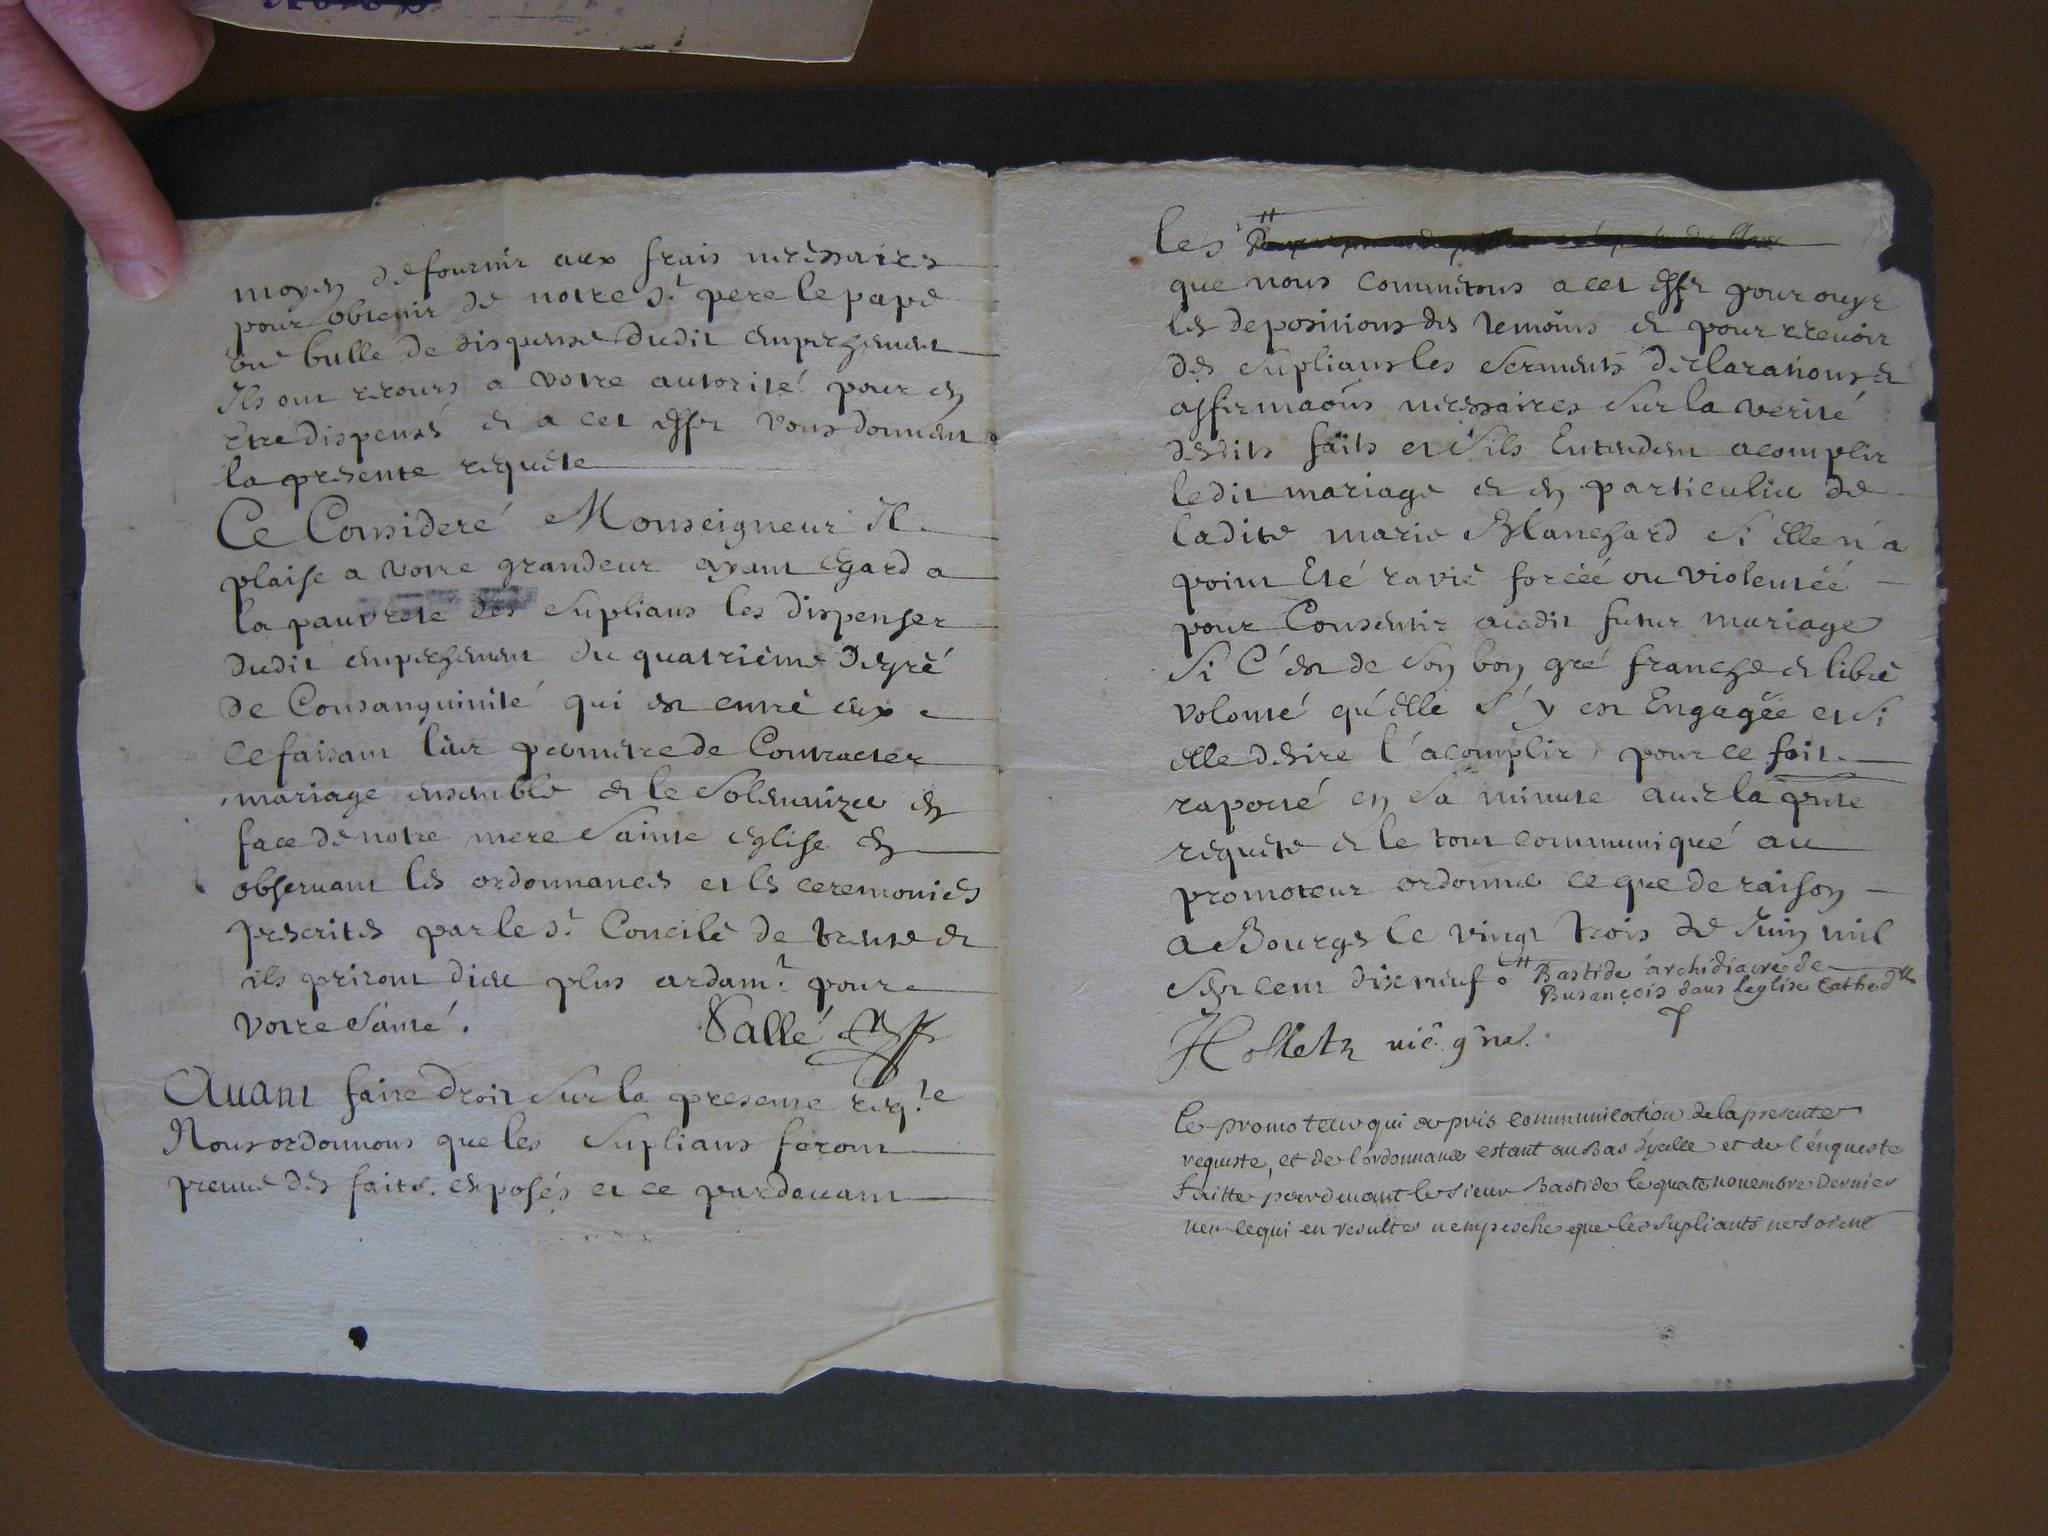 moyen de fournir aux frais necessaires
pour obtenir de notre St. pere le pape
une bulle de dispense dudit empechement
Ils ont recours a votre autorité pour en
etre dispensés et a cet effet vous donnent
la presente requete
Ce Consideré Monseigneur Il
plaise a votre grandeur ayant egard a
la pauvreté des suplians les dispenser
dudit empechement du quatrieme degré
de Consanguinité qui est entre eux
ce faisant leur permettre de Contracter
mariage ensemble et le solennizer en
face de notre mere Sainte eglise en
observant les ordonnances et les ceremonies
prescrites par le St. Concile de trente et
ils priront dieu plus ardamt. pour
votre santé.
Sallé
Avant faire droit sur la presente reqte
Nous ordonnons que les supliants feront
preuve des faits exposés et ce pardevant
les
que nous commetons a cet effet pour ouyr
les depositions des temoins et pour recevoir
des supliants les serments declarations et
affirmaons necessaires sur la verité
desdits faits et s'ils Entendent acomplir
ledit mariage et en particulier de
ladite marie Blanchard si elle n'a
point Eté ravie forcéé ou violentéé
pour Consentir audit futur mariage
si C'est de son bon gré franche et libre
volonté qu'elle s'y est Engagée et si
elle desire l'acomplir pour ce fait
raporté en sa minute avec la pnte
requete et le tout communiqué au
promoteur ordonné ce que de raison
a Bourges le vingt trois de Juin mil
sept cent dix neuf
Bastide archidiacre de
Busançois dans leglise Cathedlle
vic gnal.
le promoteur qui a pris communication de la presente
requeste, et de l'ordonnance estant au bas d'ycelle et de l'enqueste
faitte pardevant le sieur Bastide le quatre novembre dernier
veu ce qui en resulte n'empesche que les supliants ne soient